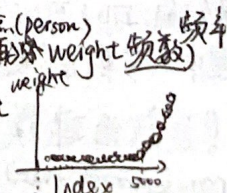 点(person)
频率
weight 频数)
weight
Index 5000